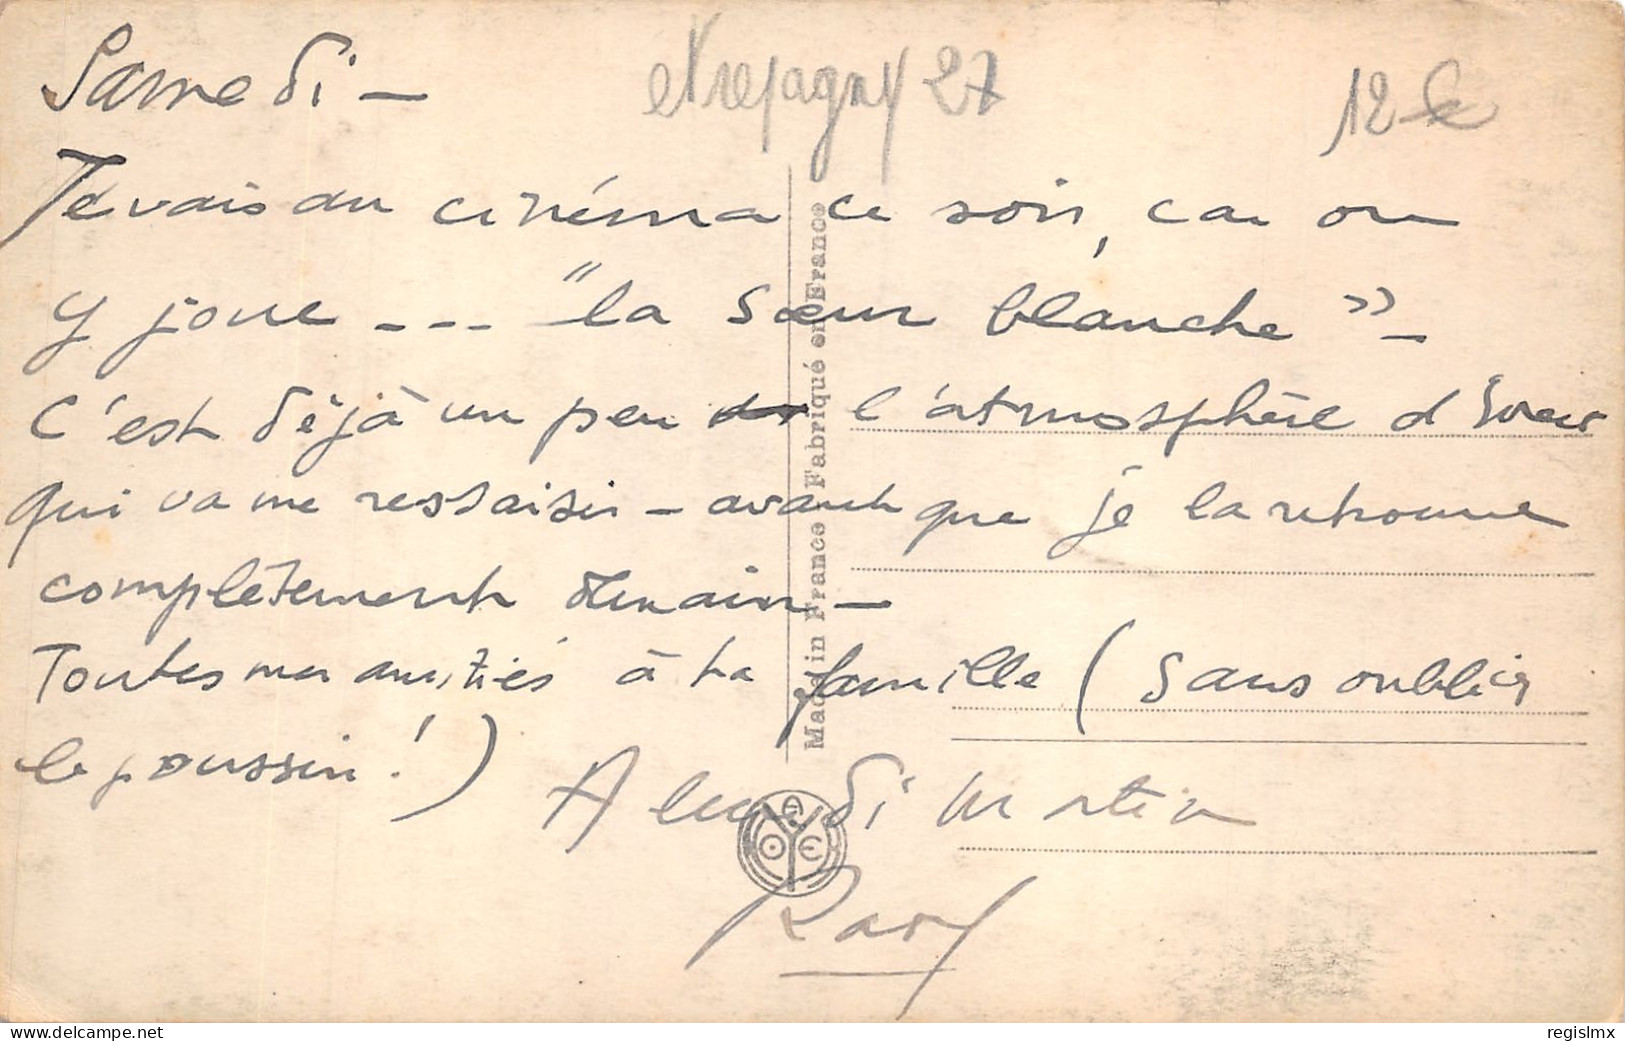 Samedi —
etrepagny 27
12
Je vais au cinéma ce soir, car on
y joue --- "la Sœur blanche" —
C'est déjà un peu l'atmosphère d'
qui va me ressaisir — avant que je la retrouve
complètement demain —
Toutes mes amitiés à ta famille (sans oublier
le poussin !)
A lundi matin
Made in France Fabriqué en France
regislmx
delcampe.net